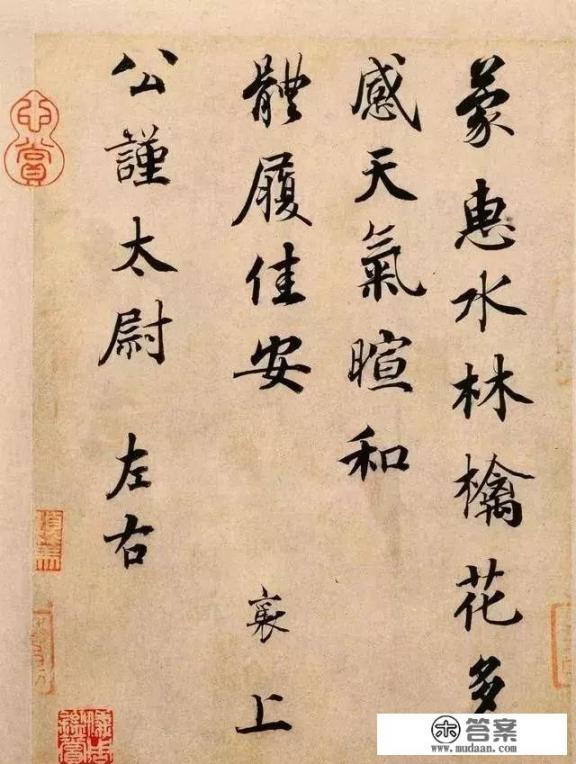 蒙惠水林檎花多
感天氣暄和
體履佳安
襄上
公謹太尉 左右
賞
答案
www.mudaan.com